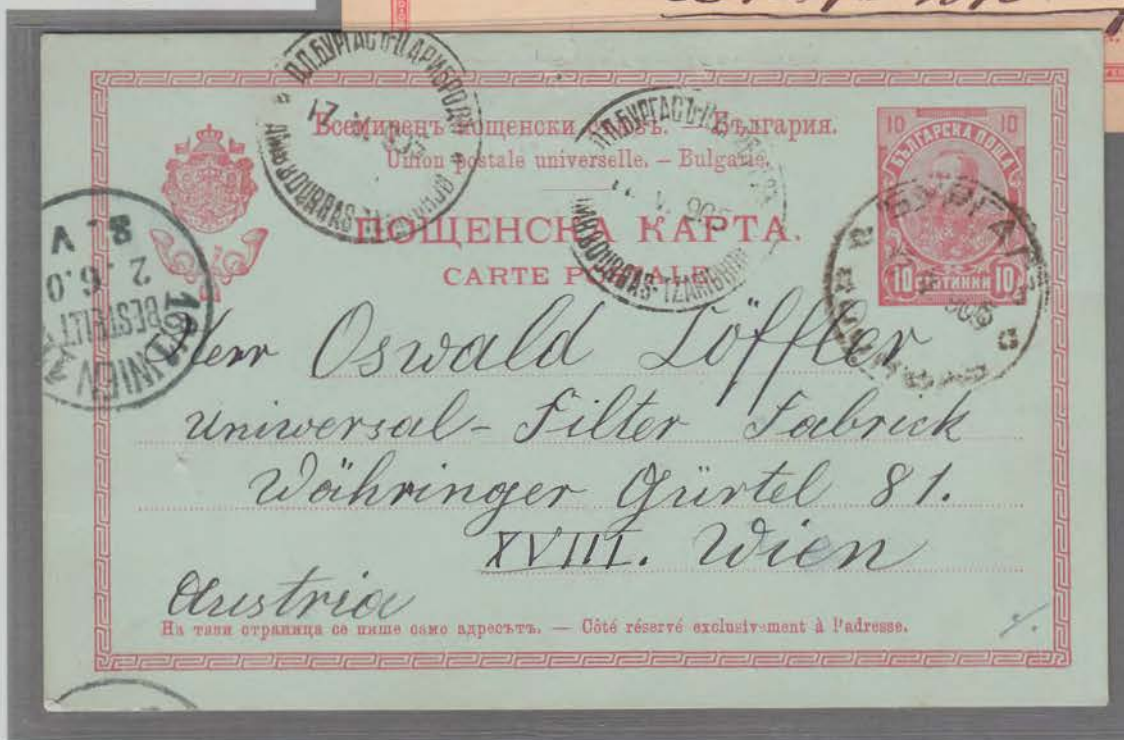 Всемиренъ пощенски съюзъ. — България.
Union postale universelle. — Bulgarie.
ПОЩЕНСКА КАРТА.
CARTE POSTALE
10 10
БЪЛГАРСКА ПОЩА
10 СТОТИНКИ 10
П.П. БУРГАСЪ-ЦАРИБРОДЪ
17 V 905 21
AMB. BOURGAS-TZARIBROD
П.П. БУРГАСЪ-
V 905
AMB. BOURGAS-TZARIBROD
БУРГАСЪ
905
16/1 WIEN
BESTELLT
2.6.0
8. V
Herr Oswald Löffler
Universal-Filter Fabrick
Währinger Gürtel 81.
XVIII. Wien
Austria
На тази страница се пише само адресътъ. — Côté réservé exclusivement à l'adresse.